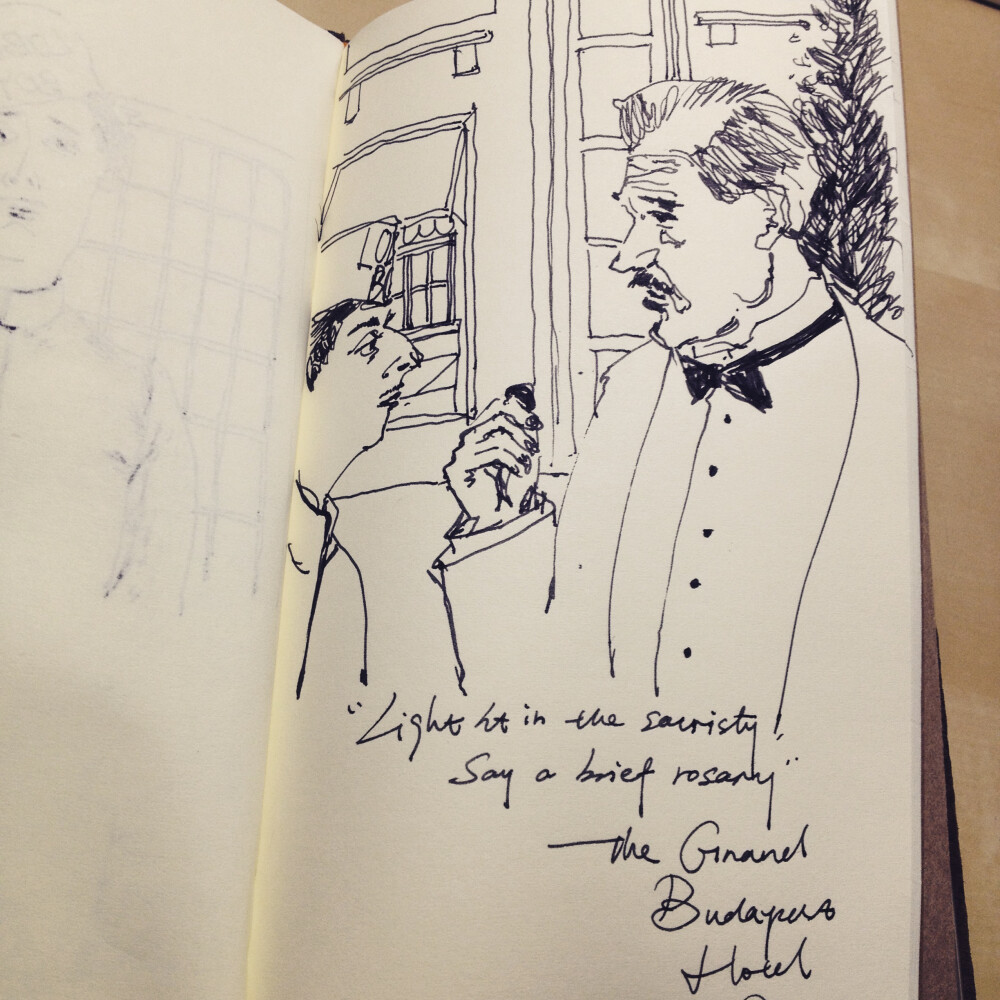 "Light it in the sacristy,
Say a brief rosary"
— The Grand
Budapest
Hotel